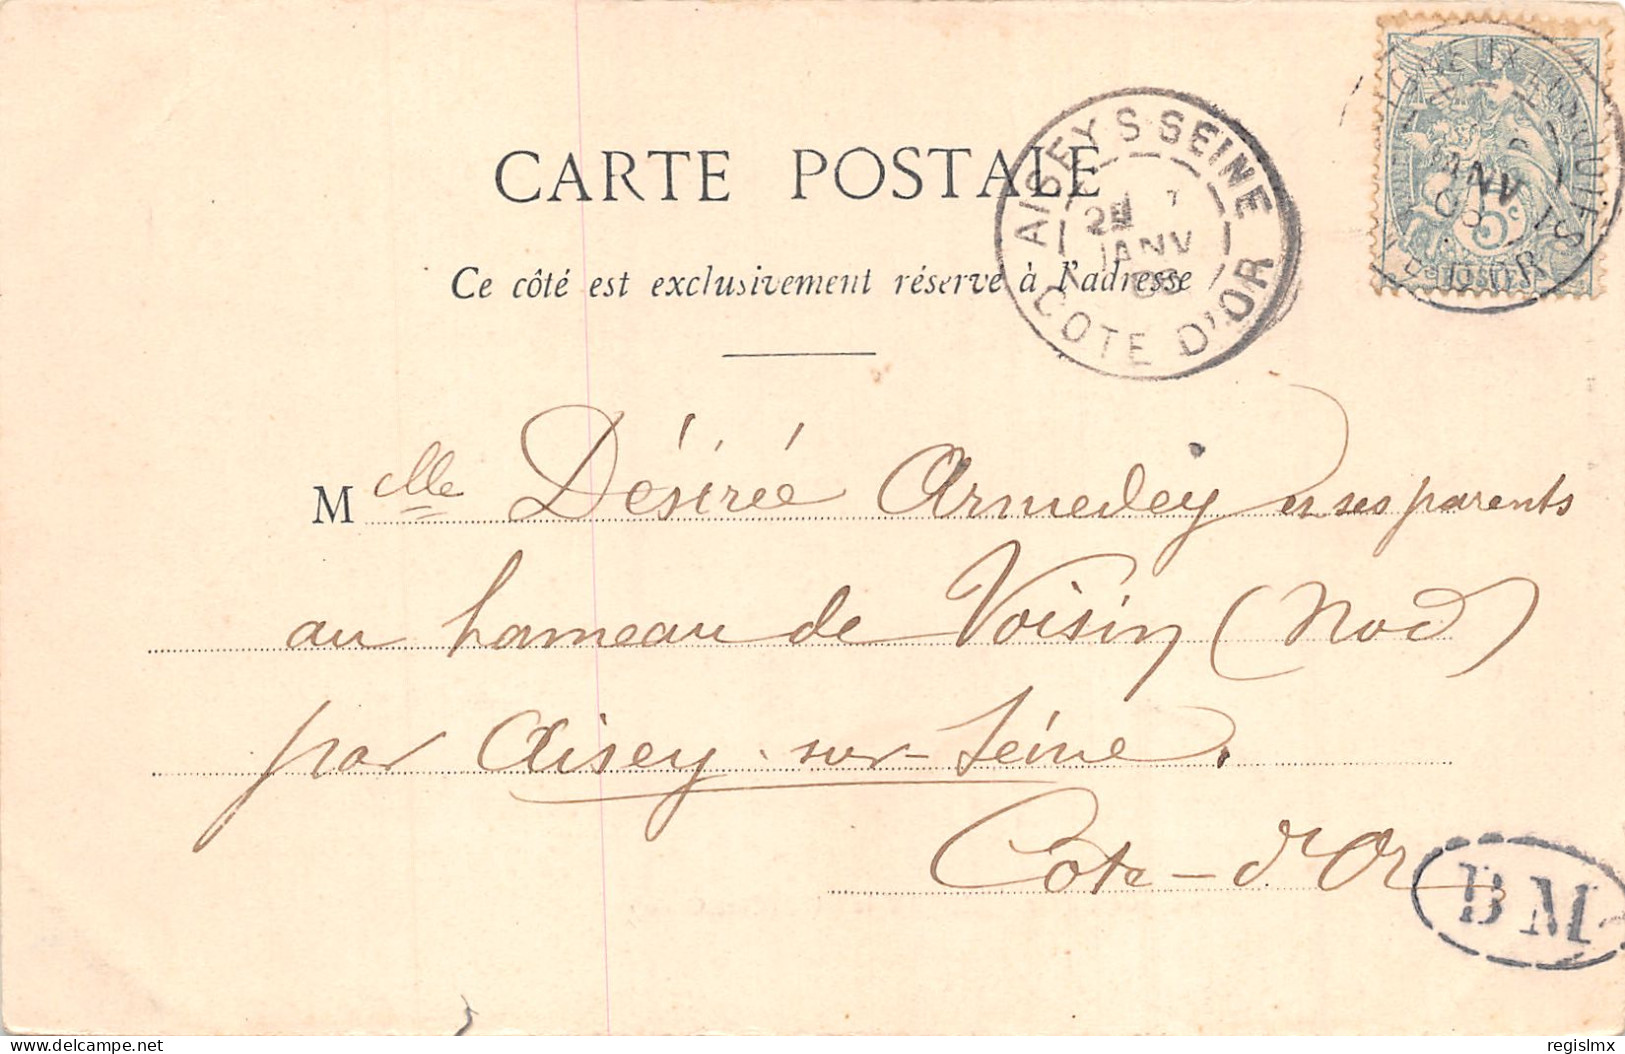 CARTE POSTALE
Ce côté est exclusivement réservé à l'adresse
AISEY S SEINE
JANV
COTE D'OR
5c
JANV
M elle Désirée Armedey
ses parents
au hameau de Voisin (Nod)
par Aisey-sur-Seine.
Côte-d'Or
BM
regislmx
delcampe.net